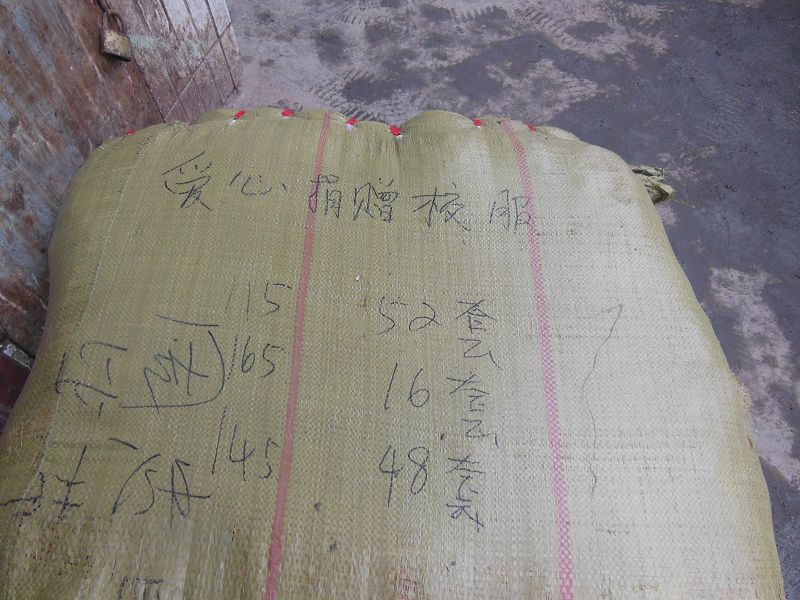 爱心捐赠校服
115 52套
165 16套
145 48套